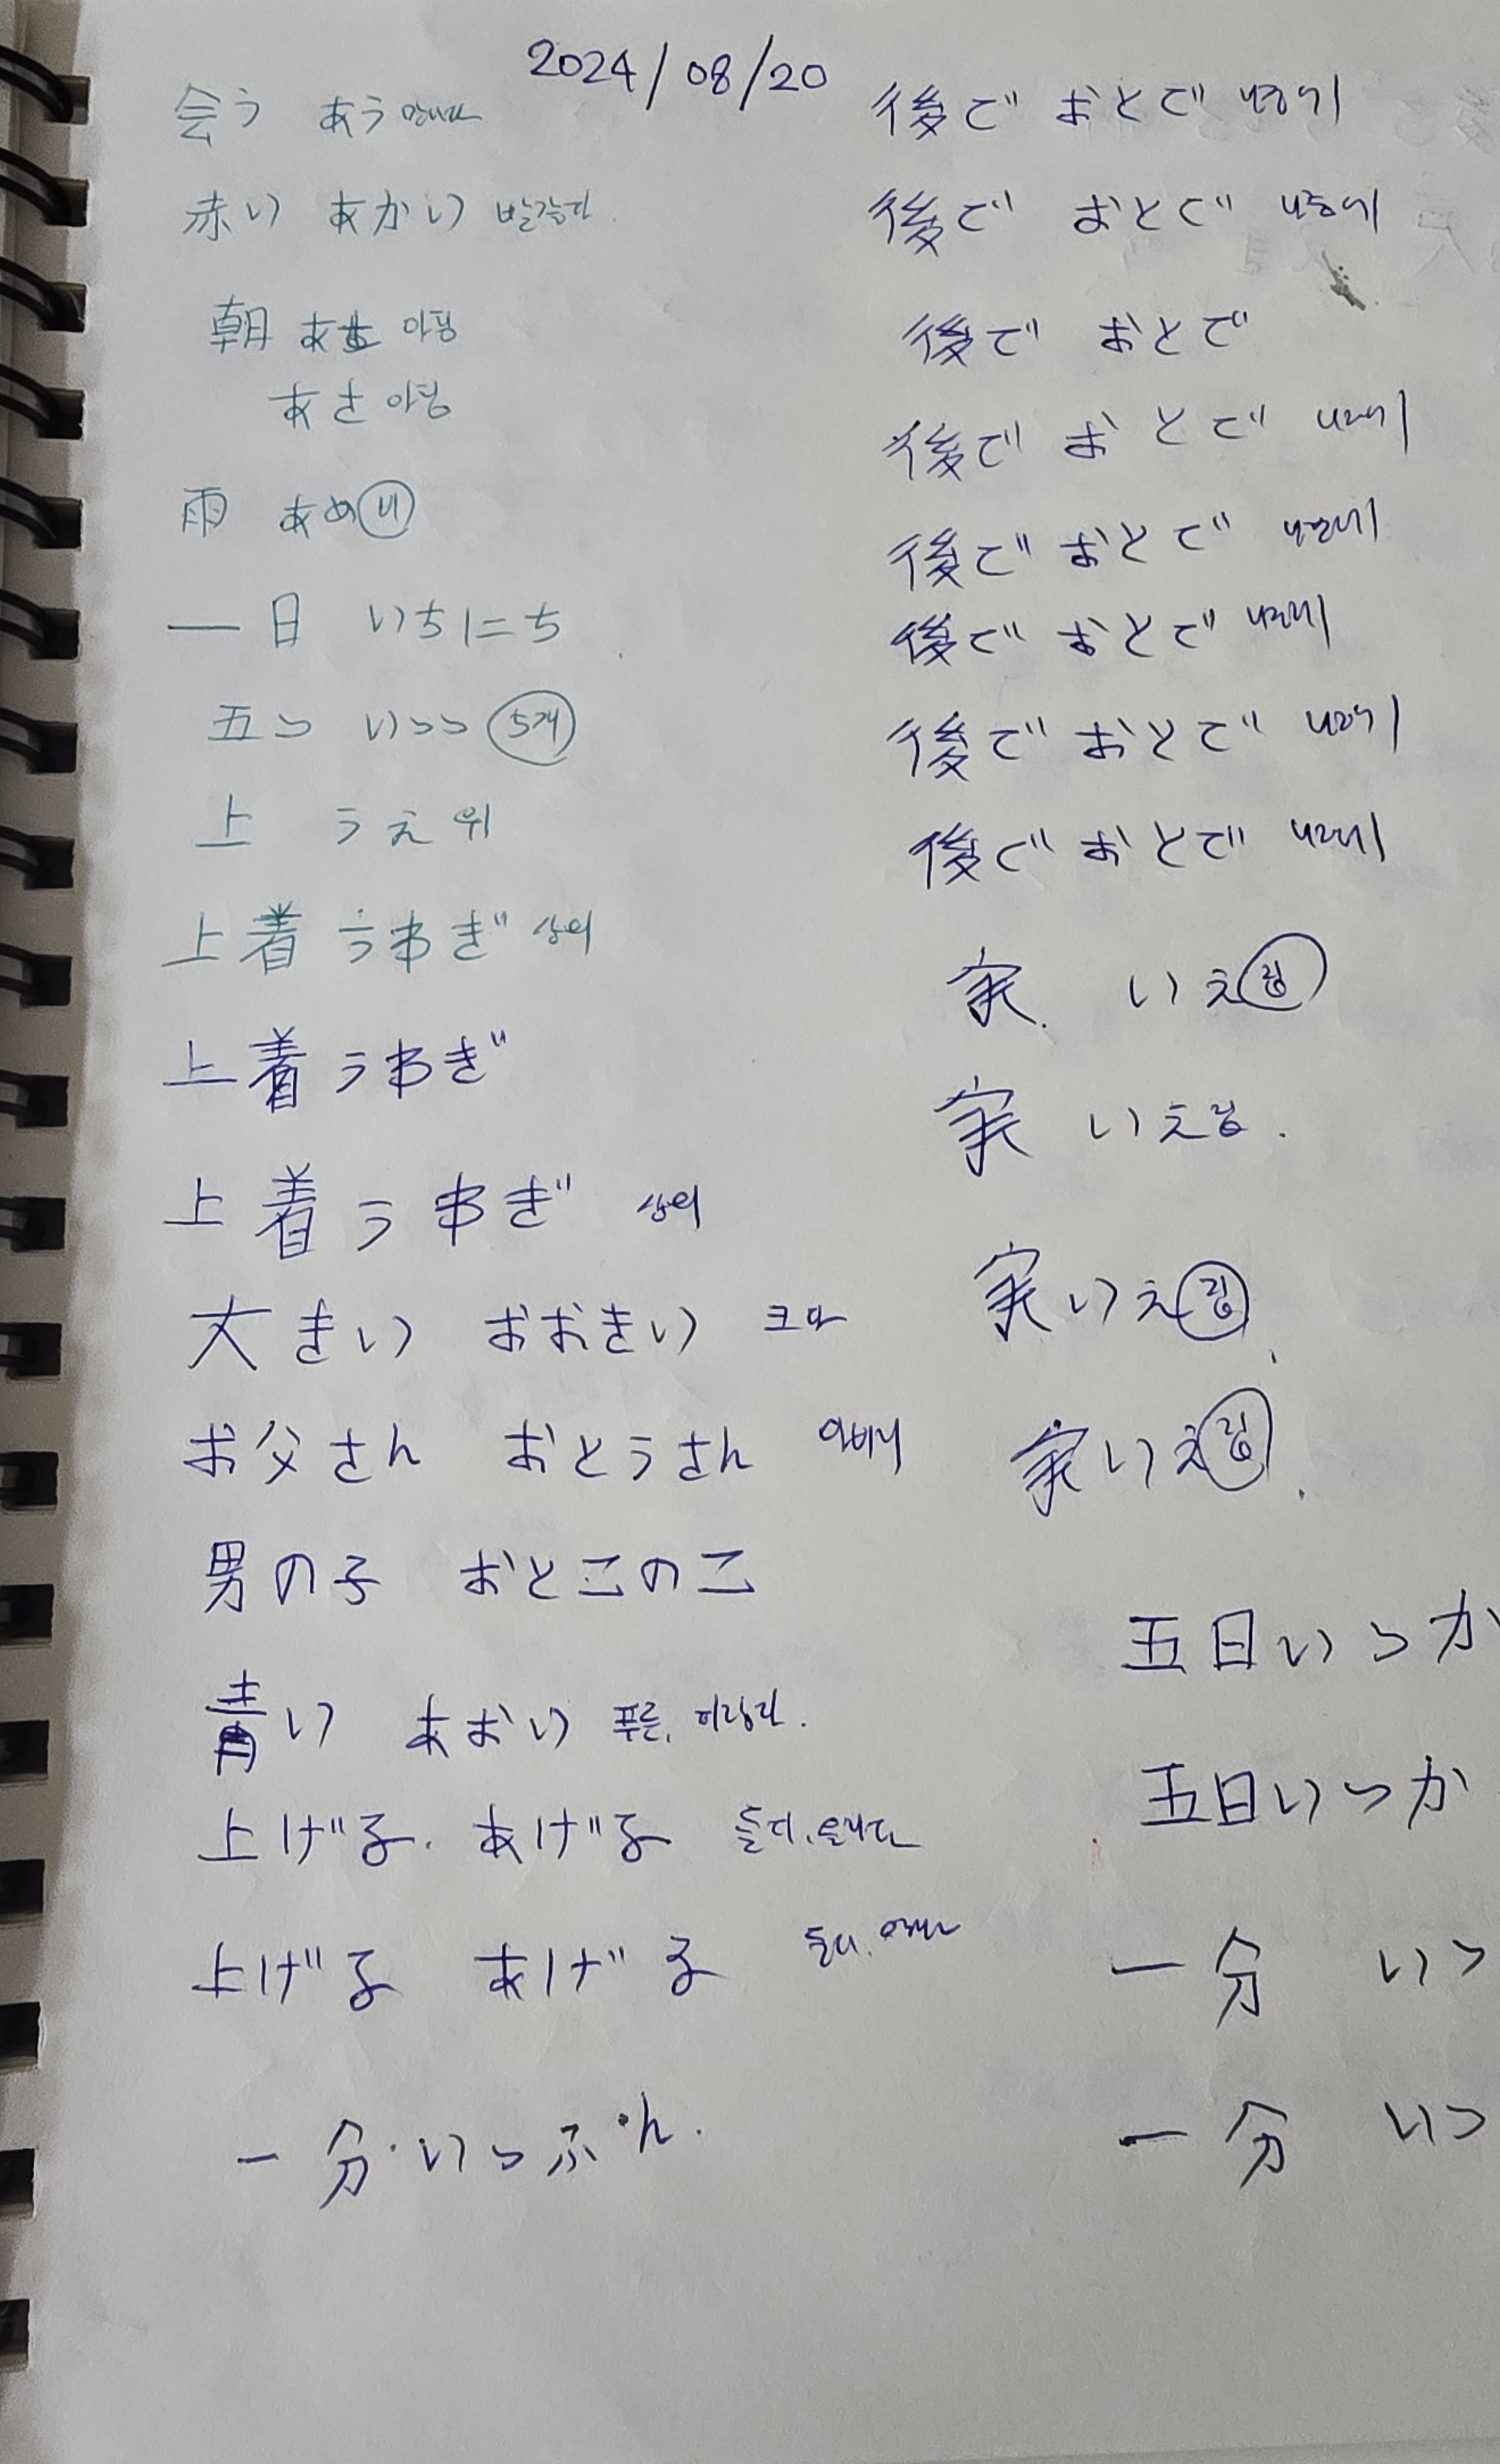 2024/08/20
会う あう 만나다
赤い あかい 빨갛다
朝 あさ 아침
あさ 아침
雨 あめ 비
一日 いちにち
五つ いつつ 5개
上 うえ 위
上着 うわぎ 상의
上着 うわぎ
上着 うわぎ 상의
大きい おおきい 크다
お父さん おとうさん 아버지
男の子 おとこのこ
青い あおい 푸른, 파랗다.
上げる. あげる 들다, 올리다
上げる あげる 들다,
一分. いっぷん.
後で おとで 나중에
後で おとで 나중에
後で おとで
後で おとで 나중에
後で おとで 나중에
後で おとで 나중에
後で おとで 나중에
後で おとで 나중에
家. いえ 집
家 いえ 집.
家 いえ 집
家 いえ 집
五日 いつか
五日 いつか
一分 いっ
一分 いっ